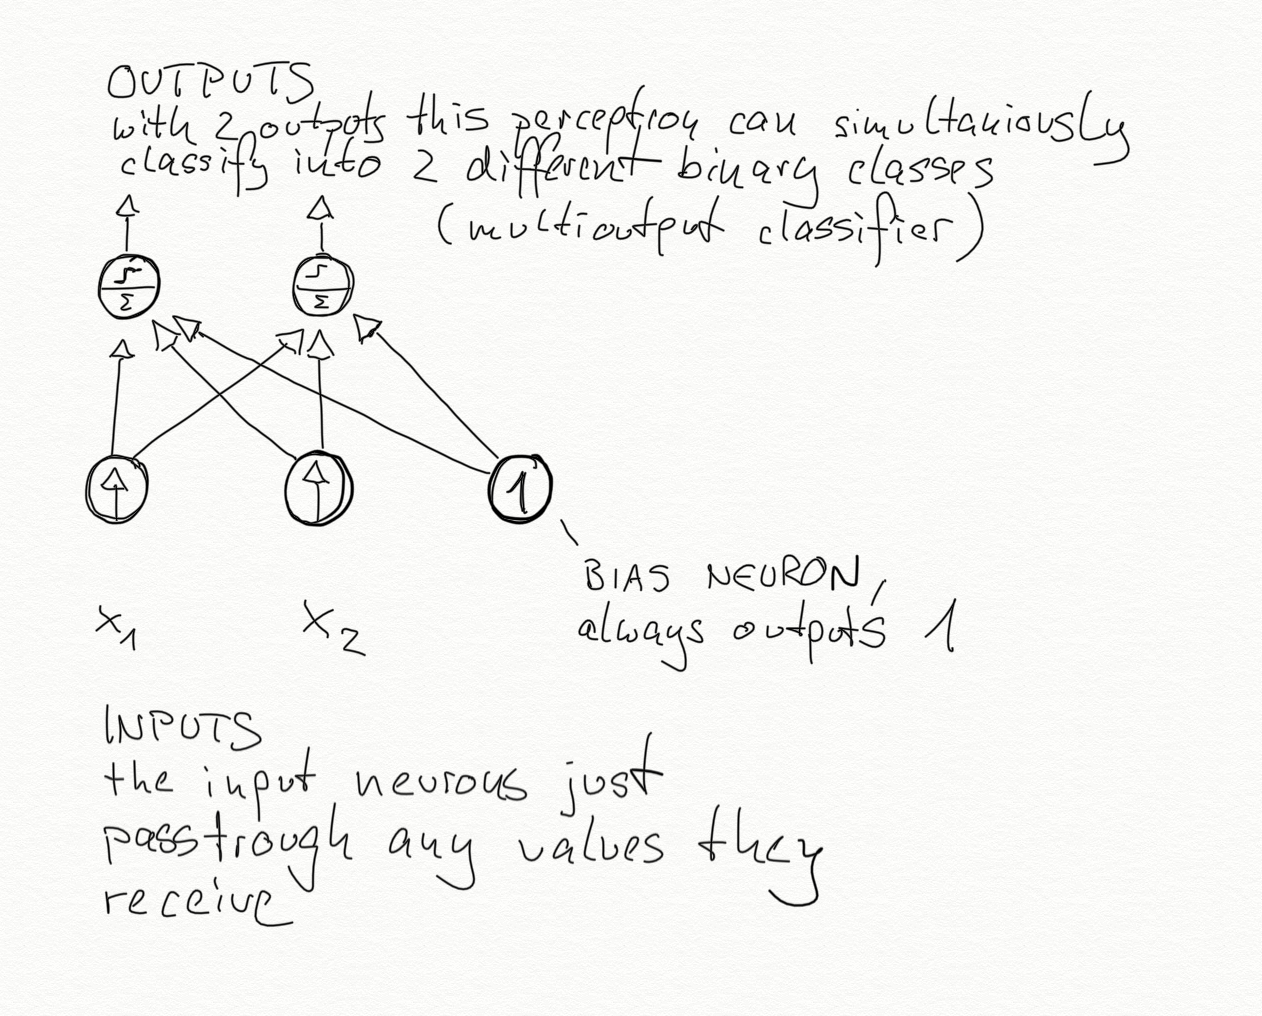 OUTPUTS
with 2 outpots this perceptron can simultaniously
classify into 2 different binary classes
(multioutput classifier)
Σ Σ
1
BIAS NEURON,
always outputs 1
x1 x2
INPUTS
the input neurons just
passtrough any values they
receive